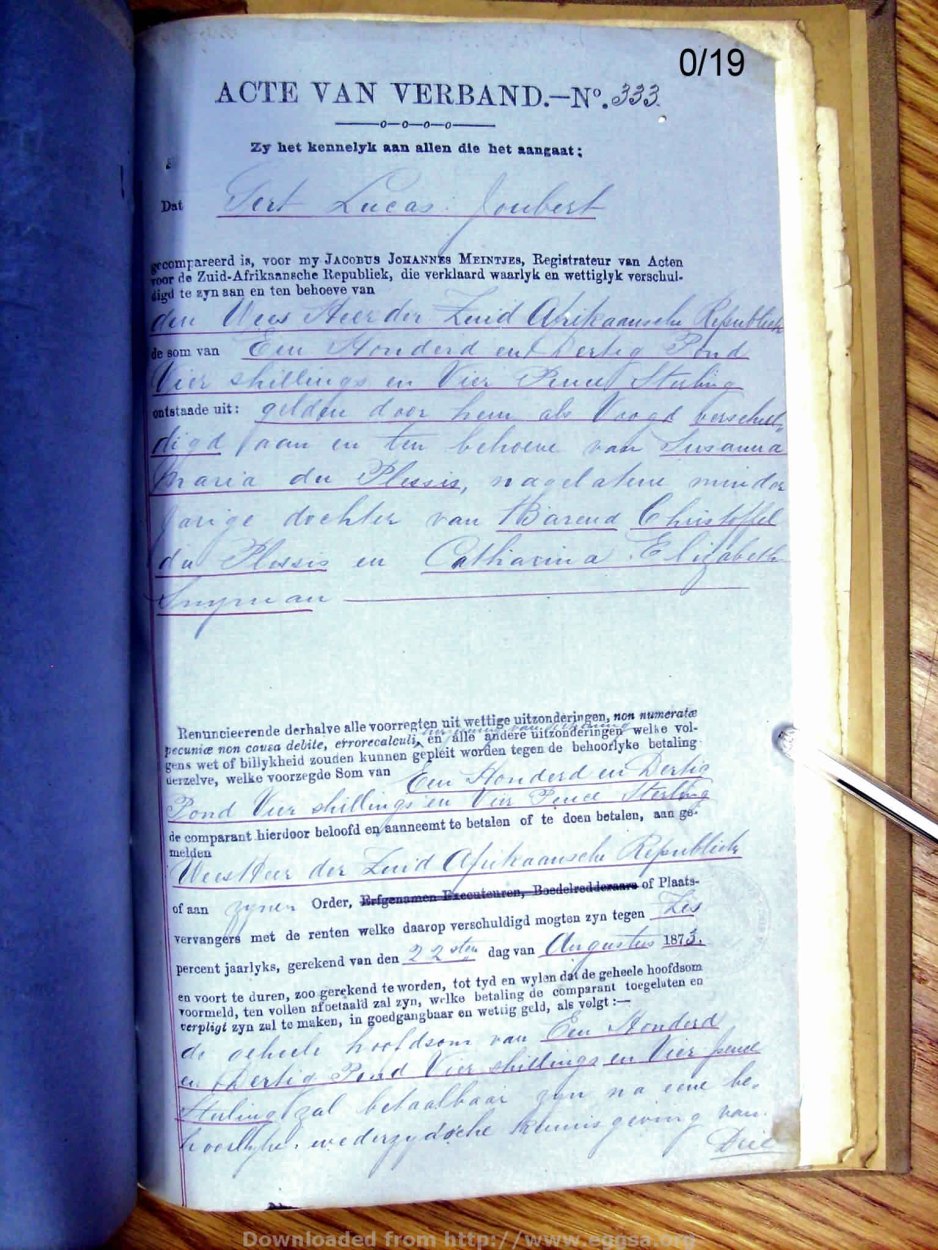 0/19
ACTE VAN VERBAND.—No. 333.
Zy het kennelyk aan allen die het aangaat;
Dat Gert Lucas Joubert
gecompareerd is, voor my JACOBUS JOHANNES MEINTJES, Registrateur van Acten
voor de Zuid-Afrikaansche Republiek, die verklaard waarlyk en wettiglyk verschul-
digd te zyn aan en ten behoeve van
den Wees Heer der Zuid Afrikaansche Republiek
de som van Een Honderd en Dertig Pond
Vier shillings en Vier Pence Sterling
ontstaade uit: gelden door hem als Voogd verschul-
digd aan en ten behoeve van Susanna
Maria du Plessis, nagelatene minder
jarige dochter van Barend Christoffel
du Plessis en Catharina Elizabeth
Snyman
Renuncieerende derhalve alle voorregten uit wettige uitzonderingen, non numeratæ
pecuniæ non causa debite, errorecalculi, en alle andere uitzonderingen welke vol-
gens wet of billykheid zouden kunnen gepleit worden tegen de behoorlyke betaling
derzelve, welke voorzegde Som van Een Honderd en Dertig
Pond Vier shillings en Vier Pence Sterling
de comparant hierdoor beloofd en aanneemt te betalen of te doen betalen, aan ge-
melden
WeesHeer der Zuid Afrikaansche Republiek
of aan zynen Order, Erfgenamen Executeuren, Boedelredderaars of Plaats-
vervangers met de renten welke daarop verschuldigd mogten zyn tegen Zes
percent jaarlyks, gerekend van den 22sten dag van Augustus 1873.
en voort te duren, zoo gerekend te worden, tot tyd en wylen dat de geheele hoofdsom
voormeld, ten vollen afbetaald zal zyn, welke betaling de comparant toegelaten en
verpligt zyn zal te maken, in goedgangbaar en wettig geld, als volgt:—
de geheele hoofdsom van Een Honderd
en Dertig Pond Vier shillings en Vier pence
Sterling zal betaalbaar zyn na eene be-
hoorlyke wederzydsche kennisgeving van
Drie
Downloaded from http://www.eggsa.org